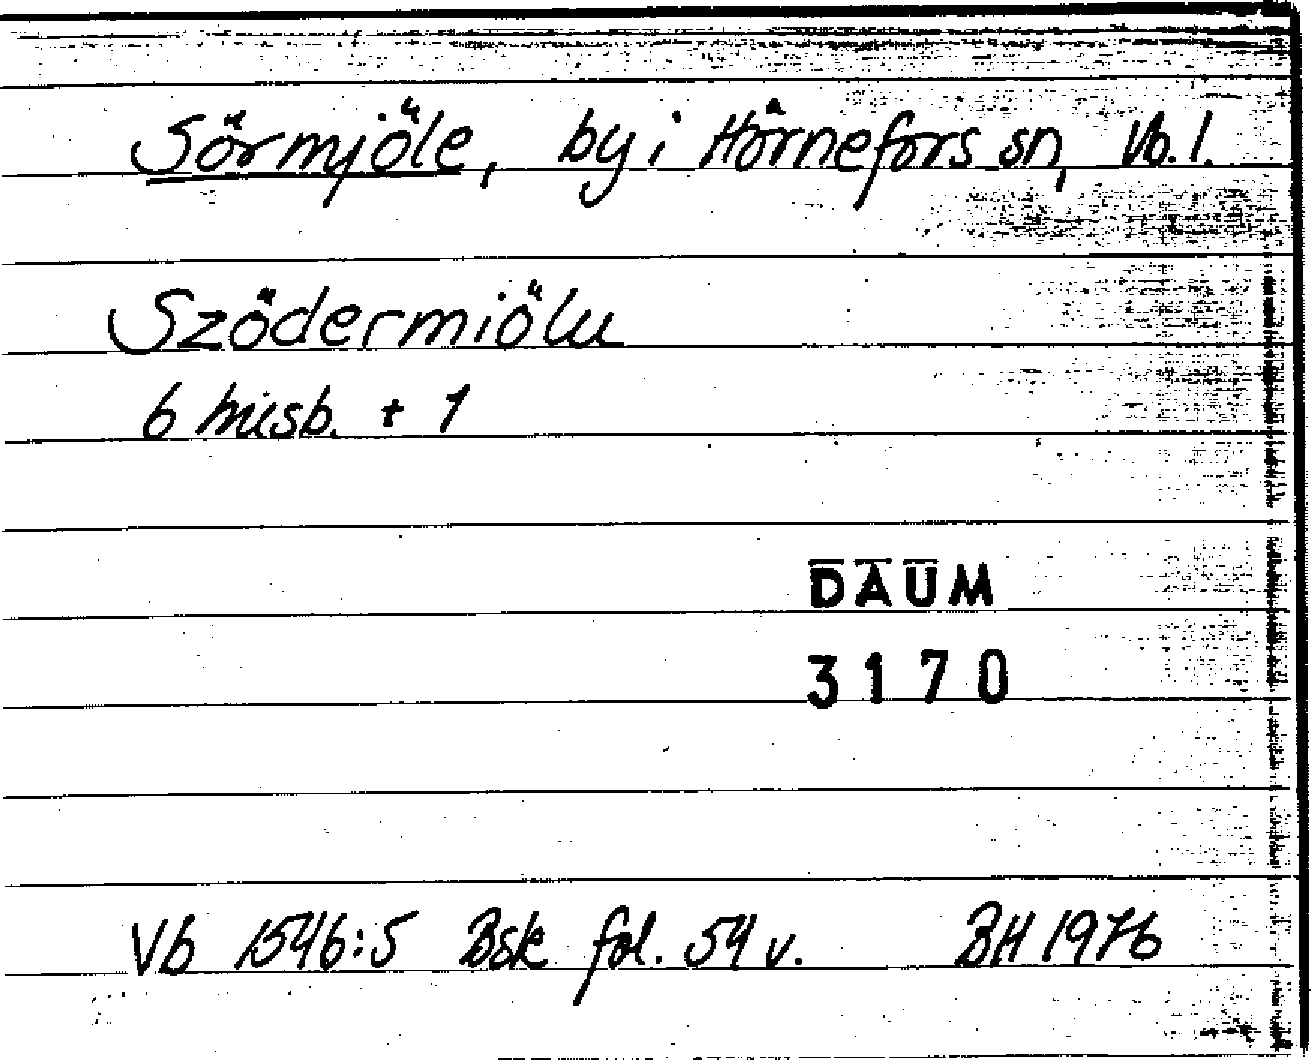 Sörmjöle, by i Hörnefors sn, Vb. l.
Szödermiölu
6 husb. + 1
DAUM
3170
Vb 1546:5 Bsk fol. 54 v. BH 1976